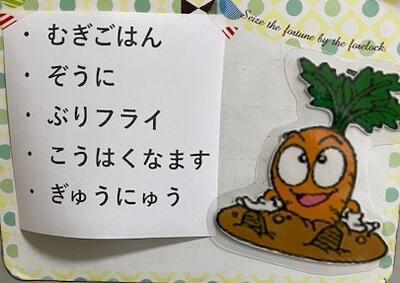 Seize the fortune by the forelock.
・むぎごはん
・ぞうに
・ぶりフライ
・こうはくなます
・ぎゅうにゅう